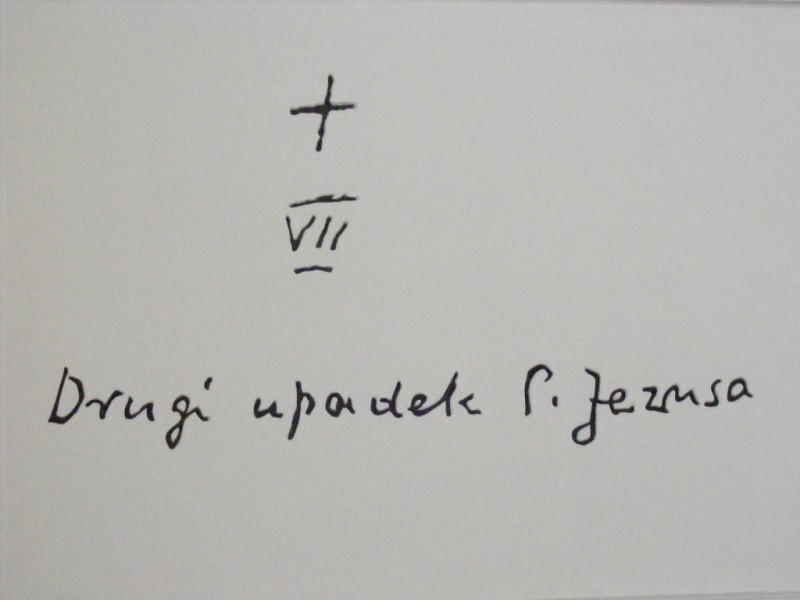 +
VII
Drugi upadek P. Jezusa